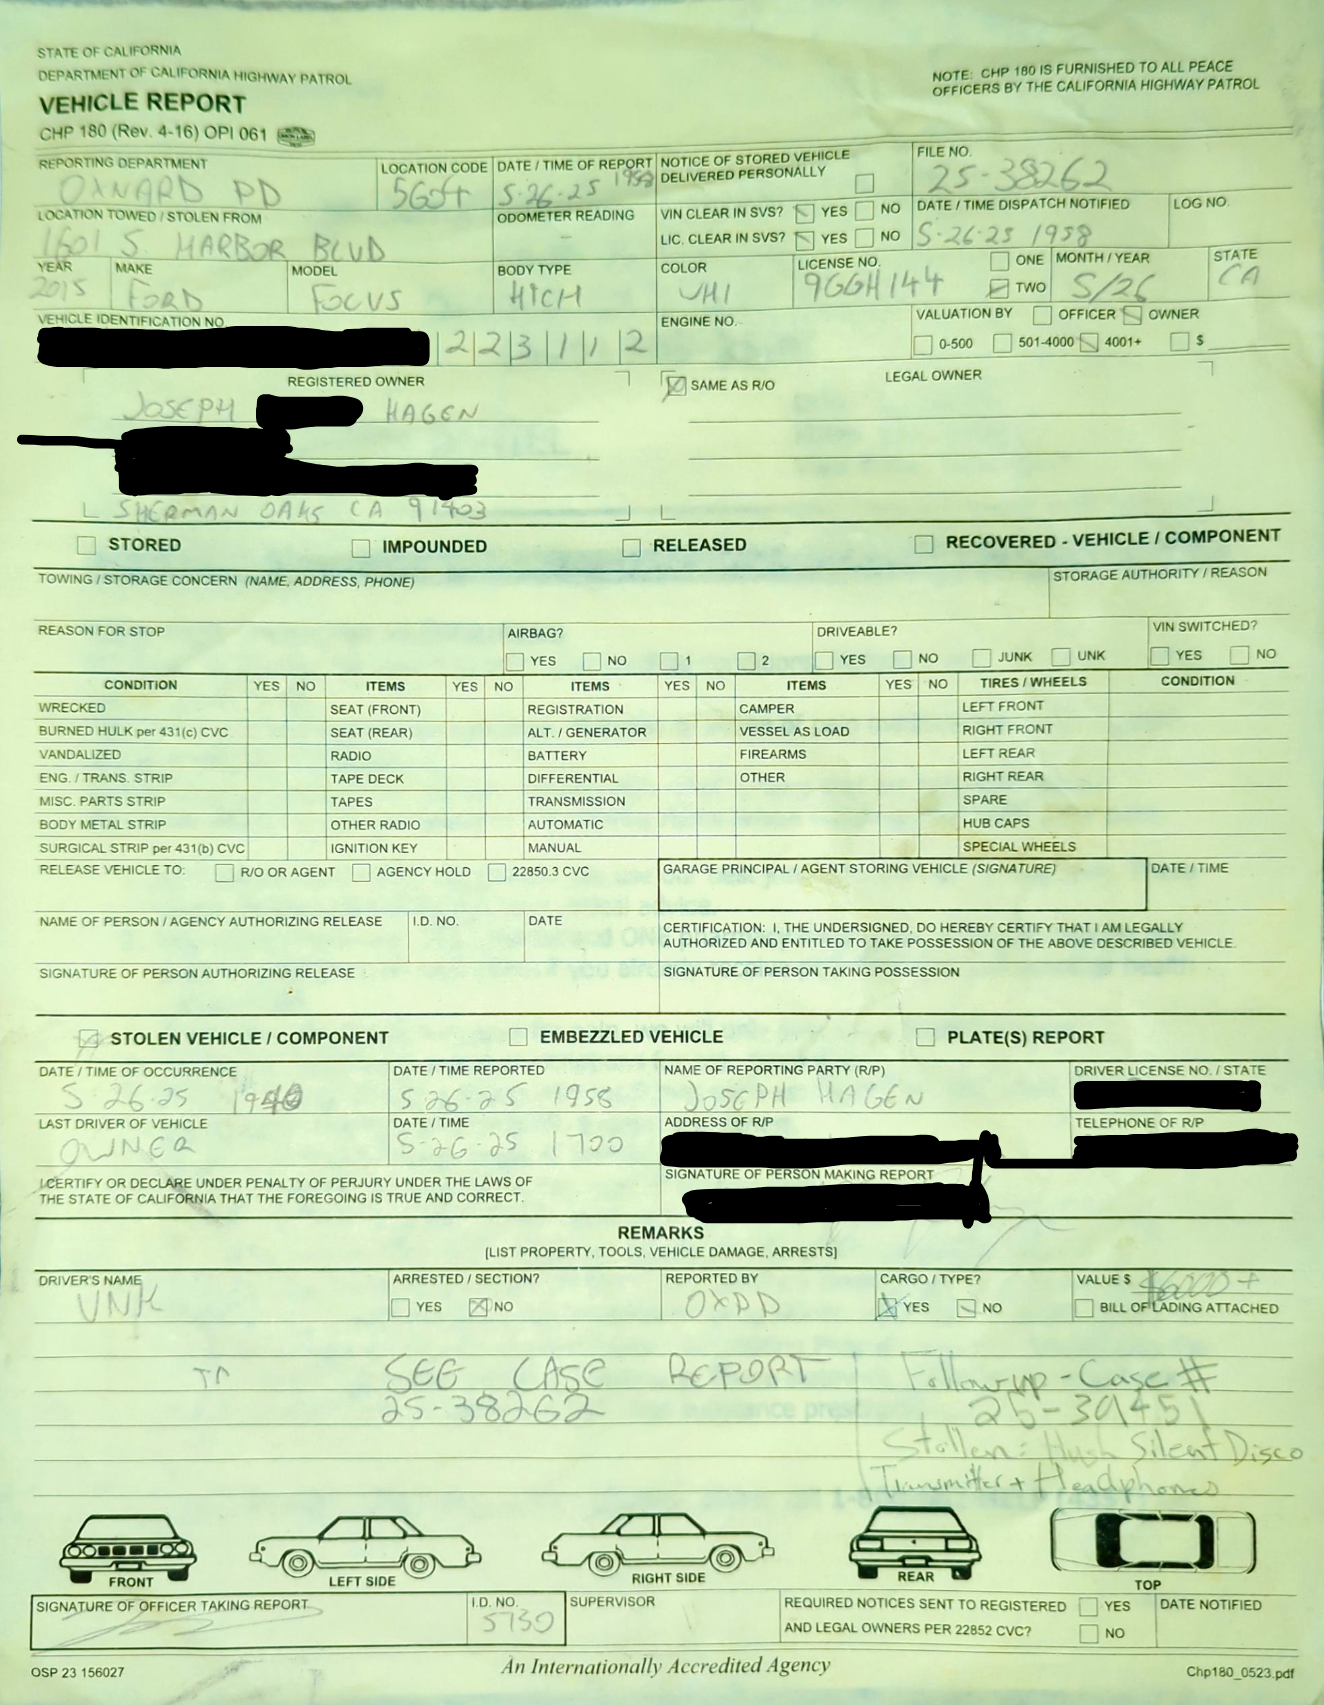 STATE OF CALIFORNIA
DEPARTMENT OF CALIFORNIA HIGHWAY PATROL
VEHICLE REPORT
CHP 180 (Rev. 4-16) OPI 061
NOTE: CHP 180 IS FURNISHED TO ALL PEACE
OFFICERS BY THE CALIFORNIA HIGHWAY PATROL
REPORTING DEPARTMENT LOCATION CODE DATE / TIME OF REPORT NOTICE OF STORED VEHICLE DELIVERED PERSONALLY FILE NO.
OXNARD PD 5604 5-26-25 1958 25-38262
LOCATION TOWED / STOLEN FROM ODOMETER READING VIN CLEAR IN SVS? YES NO DATE / TIME DISPATCH NOTIFIED LOG NO.
1601 S. HARBOR BLVD LIC. CLEAR IN SVS? YES NO 5-26-25 1958
YEAR MAKE MODEL BODY TYPE COLOR LICENSE NO. ONE MONTH / YEAR STATE
2015 FORD FOCUS HTCH WHI 9GGH144 TWO 5/26 CA
VEHICLE IDENTIFICATION NO. ENGINE NO. VALUATION BY OFFICER OWNER
2 2 3 1 1 2 0-500 501-4000 4001+ $
REGISTERED OWNER SAME AS R/O LEGAL OWNER
JOSEPH HAGEN
SHERMAN OAKS CA 91403
STORED IMPOUNDED RELEASED RECOVERED - VEHICLE / COMPONENT
TOWING / STORAGE CONCERN (NAME, ADDRESS, PHONE) STORAGE AUTHORITY / REASON
REASON FOR STOP AIRBAG? DRIVEABLE? VIN SWITCHED?
YES NO 1 2 YES NO JUNK UNK YES NO
CONDITION YES NO ITEMS YES NO ITEMS YES NO ITEMS YES NO TIRES / WHEELS CONDITION
WRECKED SEAT (FRONT) REGISTRATION CAMPER LEFT FRONT
BURNED HULK per 431(c) CVC SEAT (REAR) ALT. / GENERATOR VESSEL AS LOAD RIGHT FRONT
VANDALIZED RADIO BATTERY FIREARMS LEFT REAR
ENG. / TRANS. STRIP TAPE DECK DIFFERENTIAL OTHER RIGHT REAR
MISC. PARTS STRIP TAPES TRANSMISSION SPARE
BODY METAL STRIP OTHER RADIO AUTOMATIC HUB CAPS
SURGICAL STRIP per 431(b) CVC IGNITION KEY MANUAL SPECIAL WHEELS
RELEASE VEHICLE TO: R/O OR AGENT AGENCY HOLD 22850.3 CVC GARAGE PRINCIPAL / AGENT STORING VEHICLE (SIGNATURE) DATE / TIME
NAME OF PERSON / AGENCY AUTHORIZING RELEASE I.D. NO. DATE CERTIFICATION: I, THE UNDERSIGNED, DO HEREBY CERTIFY THAT I AM LEGALLY
AUTHORIZED AND ENTITLED TO TAKE POSSESSION OF THE ABOVE DESCRIBED VEHICLE.
SIGNATURE OF PERSON AUTHORIZING RELEASE SIGNATURE OF PERSON TAKING POSSESSION
STOLEN VEHICLE / COMPONENT EMBEZZLED VEHICLE PLATE(S) REPORT
DATE / TIME OF OCCURRENCE DATE / TIME REPORTED NAME OF REPORTING PARTY (R/P) DRIVER LICENSE NO. / STATE
5-26-25 1940 5-26-25 1958 JOSEPH HAGEN
LAST DRIVER OF VEHICLE DATE / TIME ADDRESS OF R/P TELEPHONE OF R/P
OWNER 5-26-25 1700
I CERTIFY OR DECLARE UNDER PENALTY OF PERJURY UNDER THE LAWS OF
THE STATE OF CALIFORNIA THAT THE FOREGOING IS TRUE AND CORRECT.
SIGNATURE OF PERSON MAKING REPORT
REMARKS
[LIST PROPERTY, TOOLS, VEHICLE DAMAGE, ARRESTS]
DRIVER'S NAME ARRESTED / SECTION? REPORTED BY CARGO / TYPE? VALUE $ $6000+
UNK YES NO OXPD YES NO BILL OF LADING ATTACHED
SEE CASE REPORT
25-38262
Followup - Case #
25-39451
Stollen: Hush Silent Disco
Transmitter + Headphones
FRONT LEFT SIDE RIGHT SIDE REAR TOP
SIGNATURE OF OFFICER TAKING REPORT I.D. NO. SUPERVISOR REQUIRED NOTICES SENT TO REGISTERED YES DATE NOTIFIED
5730 AND LEGAL OWNERS PER 22852 CVC? NO
OSP 23 156027 An Internationally Accredited Agency Chp180_0523.pdf